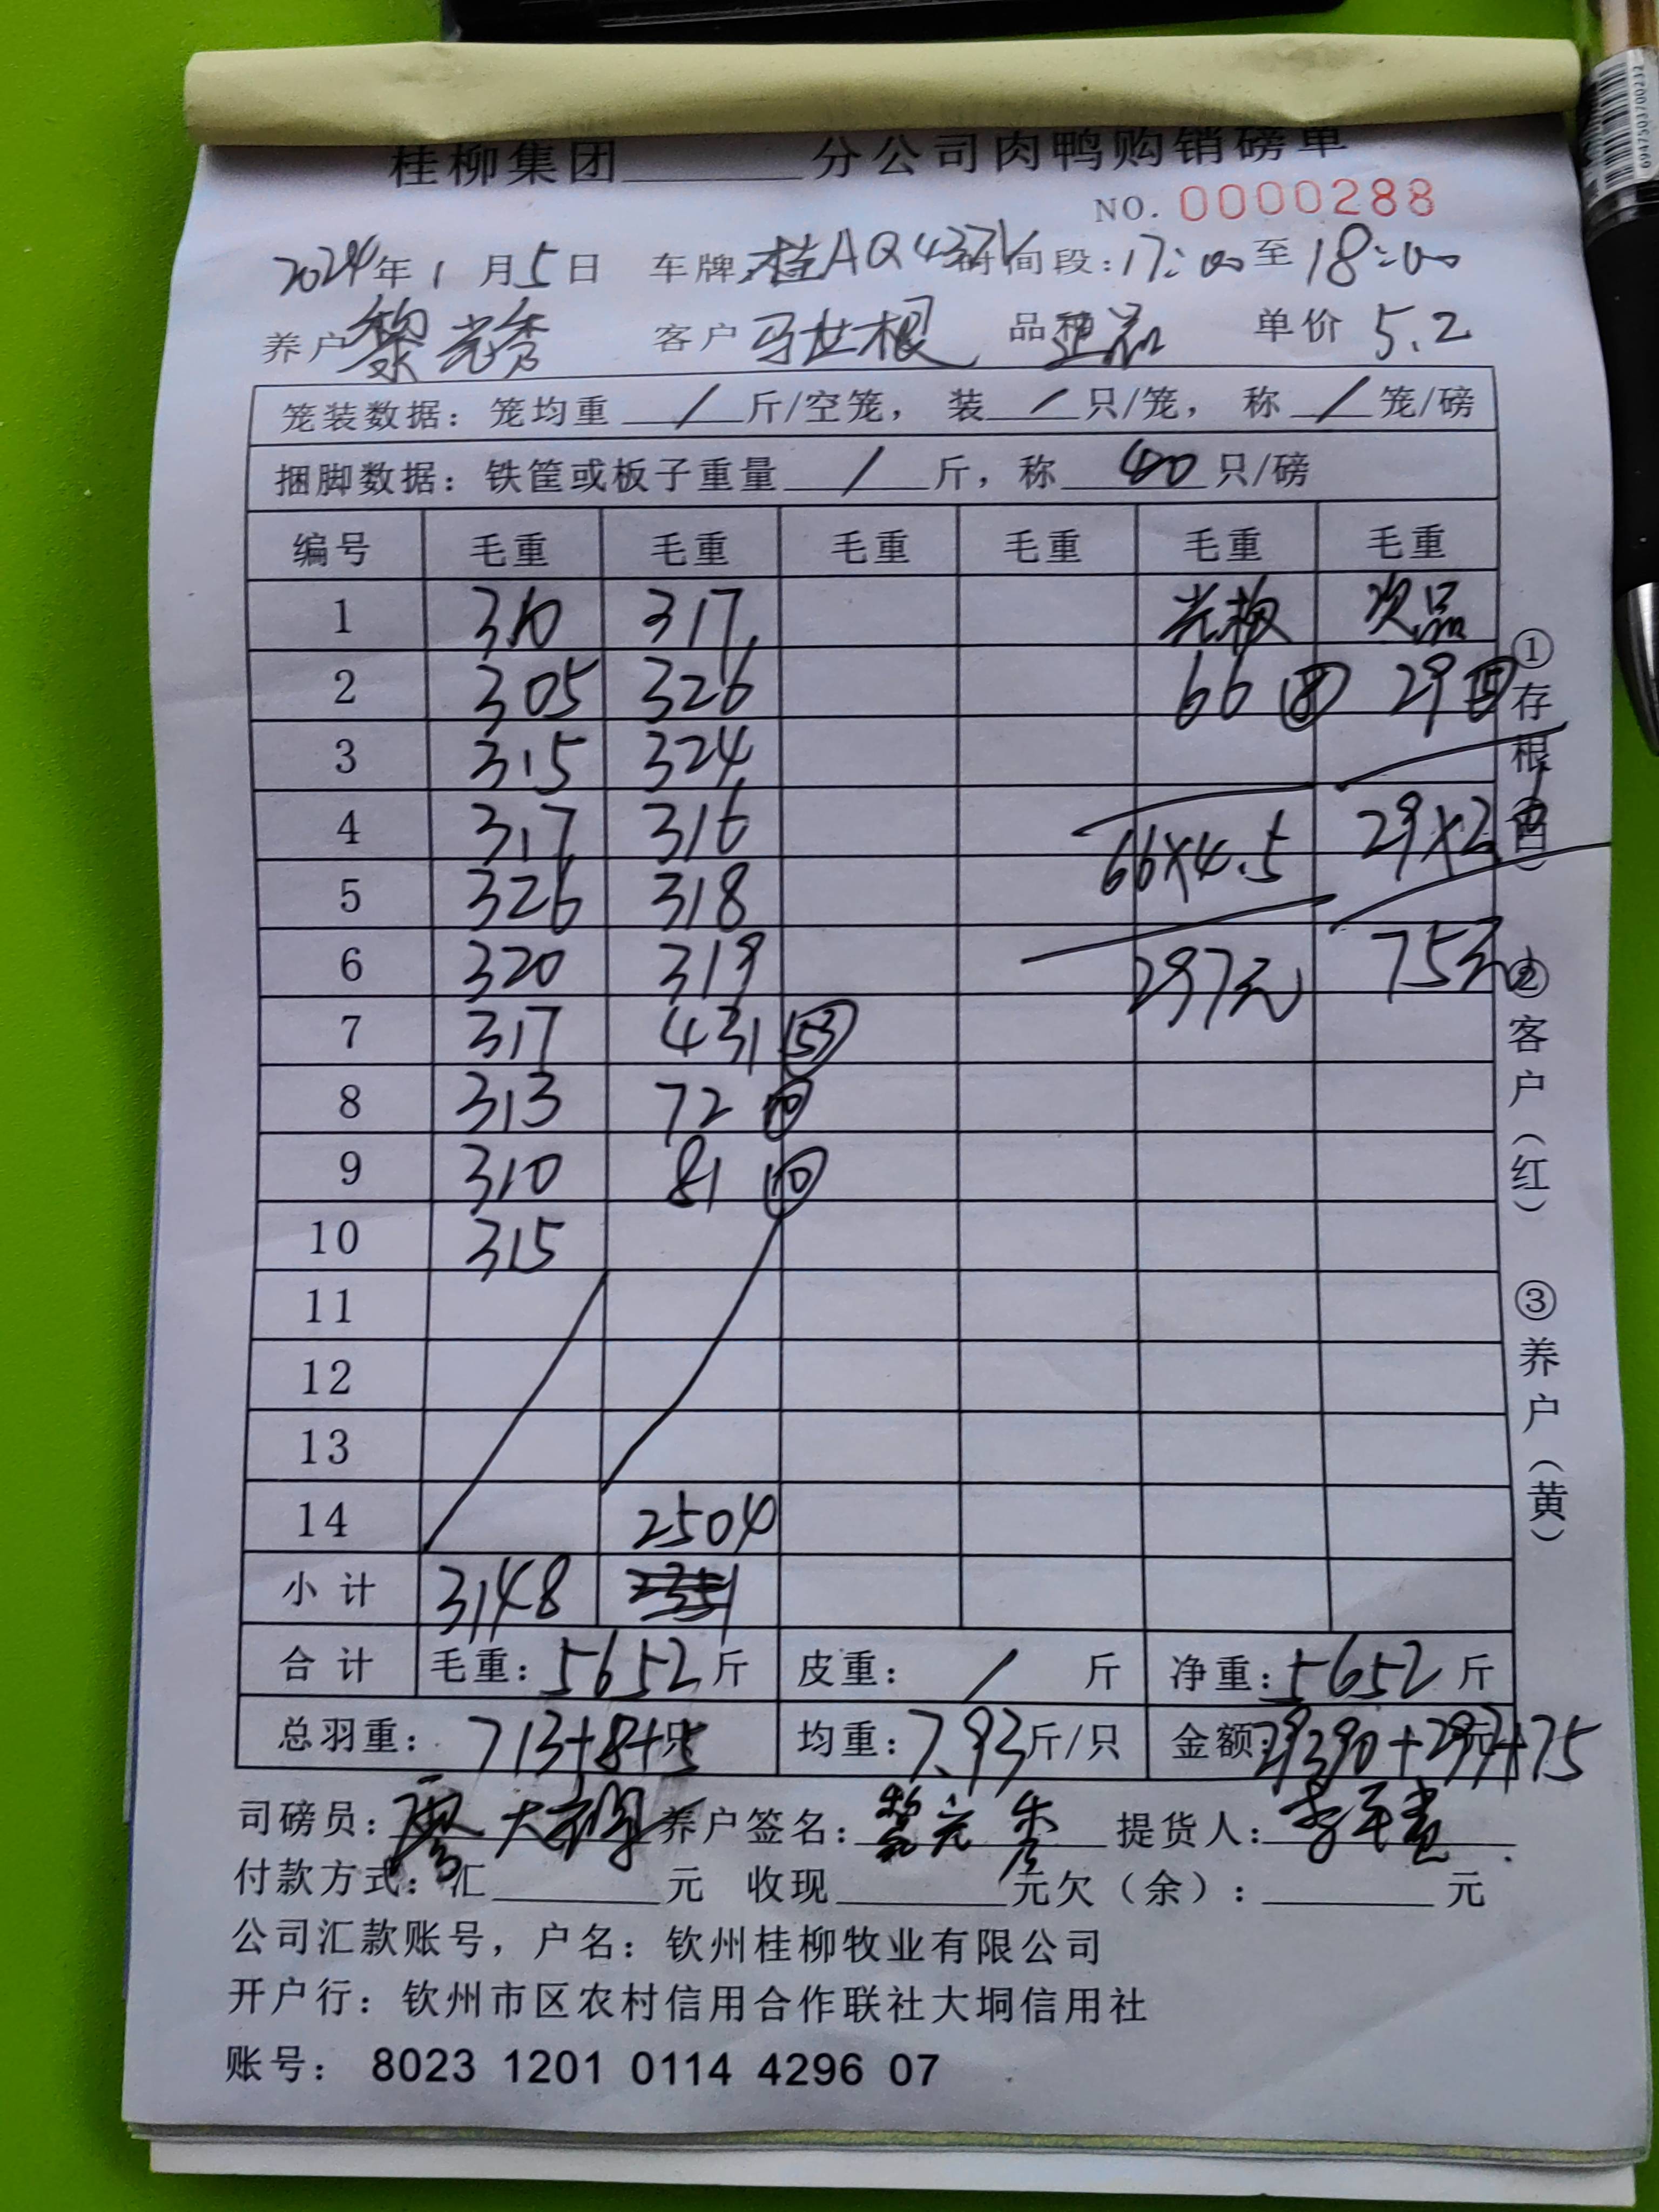 桂柳集团______分公司肉鸭购销磅单
NO. 0000288
2024年1月5日 车牌:桂AQ437 时间段:17:00至18:00
养户 黎光秀 客户 马世根 品种 单价 5.2
笼装数据:笼均重 / 斤/空笼, 装 / 只/笼, 称 / 笼/磅
捆脚数据:铁筐或板子重量 / 斤,称 40 只/磅
编号 毛重 毛重 毛重 毛重 毛重 毛重
1 310 317 次品
2 305 326 66 ⑧ 29
3 315 324
4 317 316 66×4.5 29×2.
5 326 318
6 320 319 297元 75元
7 317 431 (53)
8 313 72 (10)
9 310 81 (10)
10 315
11
12
13
14 2504
小计 3148
合计 毛重:5652斤 皮重: / 斤 净重:5652斤
总羽重:713+8+5只 均重:7.93斤/只 金额:29390+297+75元
司磅员: 养户签名: 提货人:
付款方式:汇______元 收现______元欠(余):______元
公司汇款账号,户名:钦州桂柳牧业有限公司
开户行:钦州市区农村信用合作联社大垌信用社
账号: 8023 1201 0114 4296 07
①存根(白) ②客户(红) ③养户(黄)